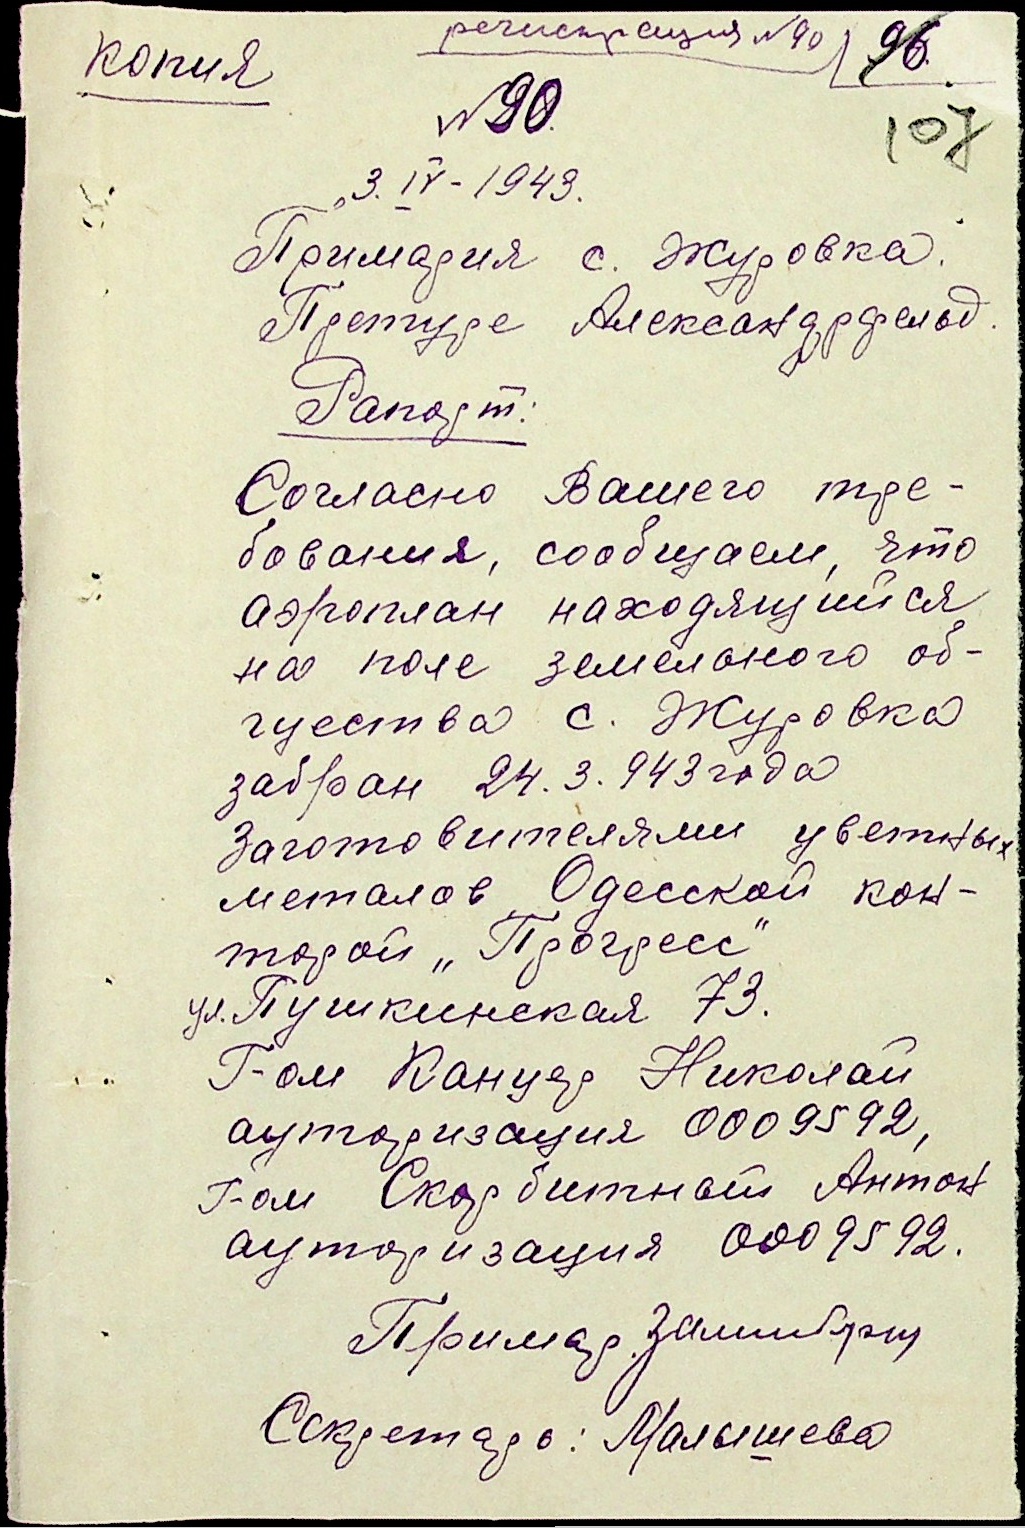 регистрация №90 96.
копия
№90.
107
3. IV - 1943.
Примария с. Журовка.
Претуре Александрфельд.
Рапорт:
Согласно Вашего тре-
бования, сообщаем, что
аэроплан находящийся
на поле земельного об-
щества с. Журовка
забран 24. 3. 943 года
Заготовителями цветных
металов Одесской кон-
торой „Прогресс"
ул. Пушкинская 73.
Г-ом Канцер Николай
ауторизация 0009592,
Г-ом Скорбитный Антон
ауторизация 0009592.
Примар.
Секретарь: Малышева